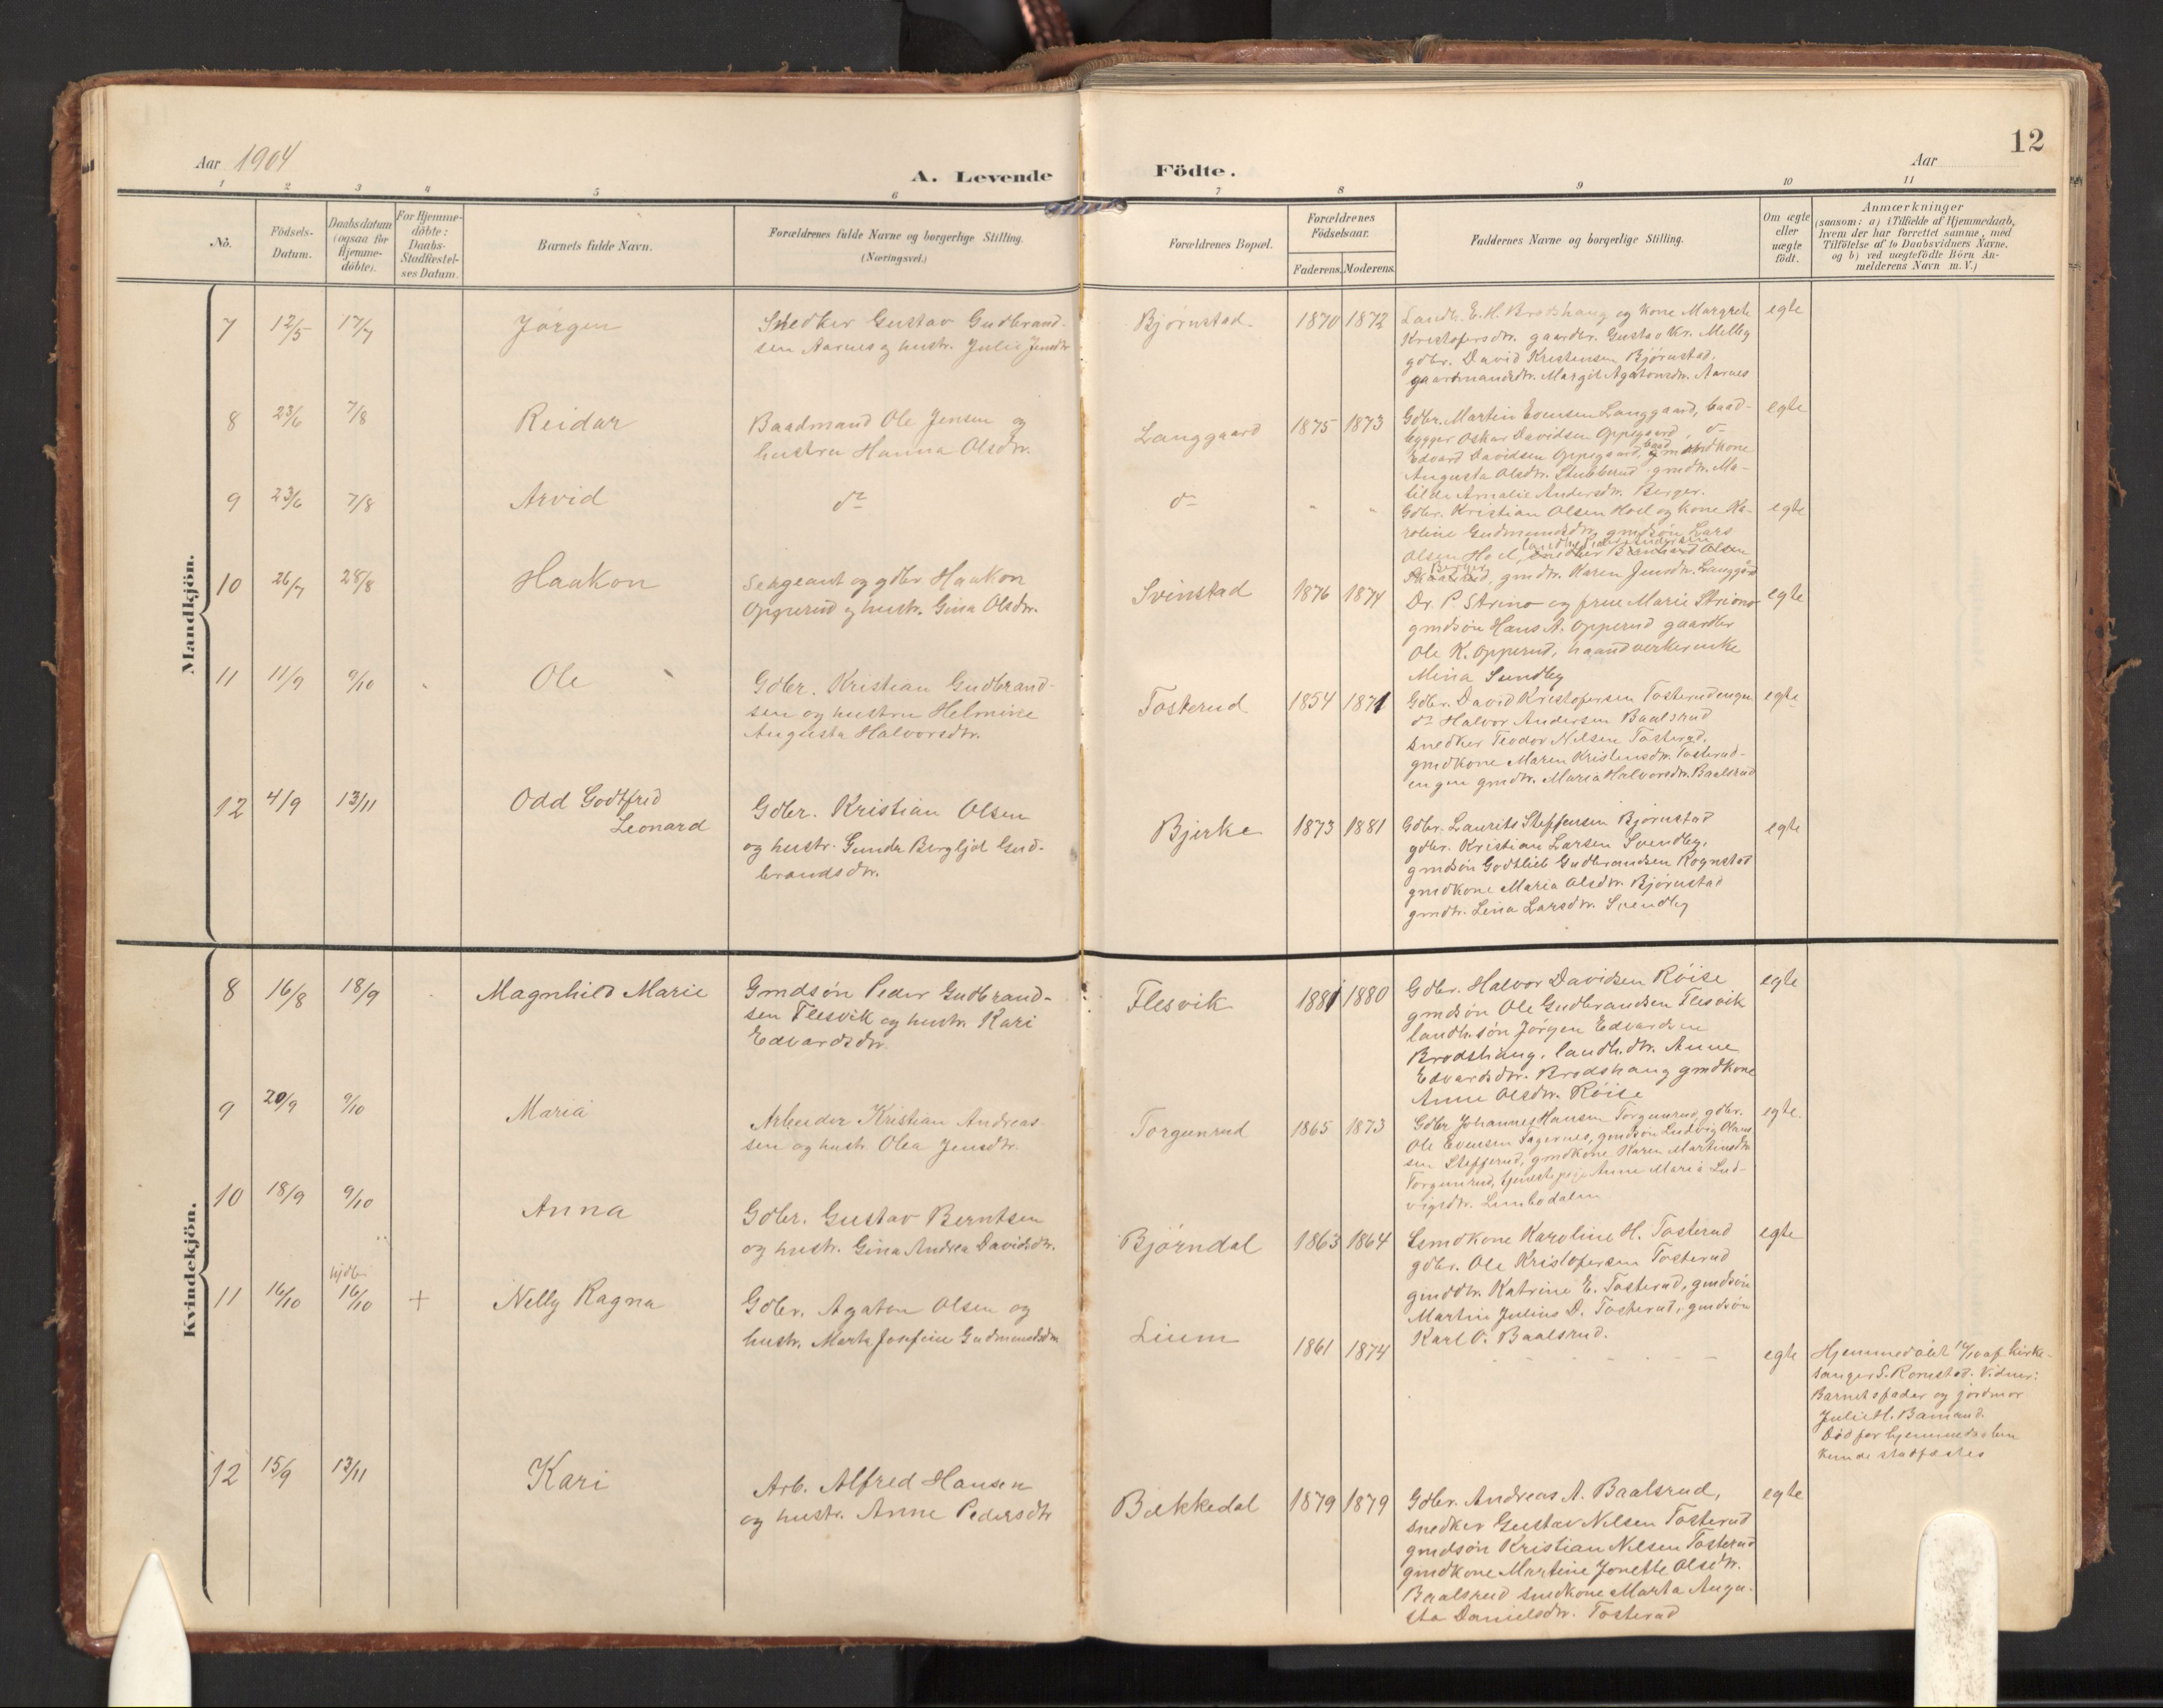 Aar 1904
A. Levende
Födte.
Aar
12
1 2 3 4 5 6 7 8 9 10 11
No.
Födsels-
Datum.
Daabsdatum
(ogsaa for
Hjemme-
döbte).
For Hjemme-
döbte:
Daabs-
Stadfæstel-
ses Datum.
Barnets fulde Navn.
Forældrenes fulde Navne og borgerlige Stilling.
(Næringsvei.)
Forældrenes Bopæl.
Forældrenes
Födselsaar.
Faderens. Moderens.
Faddernes Navne og borgerlige Stilling.
Om ægte
eller
uægte
födt.
Anmærkninger
(saasom: a) i Tilfælde af Hjemmedaab,
hvem der har forrettet samme, med
Tilföielse af to Daabsvidners Navne.
og b) ved uægtefödte Börn An-
melderens Navn m. V.)
Mandkjön.
7 12/5 17/7 Jørgen
Snedker Gustav Gudbrand-
sen Aarnes og hustr. Julie Jensdtr
Bjørnstad. 1870 1872
Landh. E. H. Brodshaug og kone Margrete
Kristofersdtr. gaardbr. Gustav Kr. Melby
gdbr. David Kristensen Bjørnstad,
gaardmandsdtr. Margit Agatonsdtr. Aarnes
egte
8 23/6 7/8 Reidar
Baadmand Ole Jensen og
hustru Hanna Olsdtr.
Langgaard 1875 1873
Gdbr. Martin Evensen Langgaard, baad-
bygger Oskar Davidsen Oppegaard, do
Edvard Davidsen Oppegaard, gmdkone
Augusta Olsdtr. Stubberud gmdtr. Ma-
tilde Amalie Andersdtr. Berger.
egte
9 23/6 7/8 Arvid
do
do " "
Gdbr. Kristian Olsen Hoel og kone Ka-
roline Gudmundsdtr, gmdsøn Lars
Olsen Hoel, snedker Bernhard Olsen
Skaarerud, gmdtr. Karen Jensdtr. Langgård
egte
10 26/7 28/8 Haakon
Sergeant og gdbr Haakon
Opperud og hustr. Gina Olsdtr.
Svinstad 1876 1874
Dr. P. Strino og frue Marie Strino
gmdsøn Hans A. Opperud gaardbr
Ole K. Opperud, haandverkerenke
Mina Sundby
egte
11 11/9 9/10 Ole
Gdbr. Kristian Gudbrand-
sen og hustru Helmine
Augusta Halvorsdtr.
Tosterud 1854 1871
Gdbr. David Kristofersen Tosterudengen
do Halvor Andersen Baalsrud
snedker Teodor Nilsen Tosterud.
gmdkone Maren Kristensdtr. Tosterud-
engen gmdtr. Maria Halvorsdtr. Baalsrud
egte
12 4/9 13/11 Odd Godtfred
Leonard
Gdbr. Kristian Olsen
og hustr. Gunda Bergljot Gud-
brandsdtr.
Bjerke 1873 1881
Gdbr. Laurits Steffensen Bjørnstad
gdbr. Kristian Larsen Svendby.
gmdsøn Godtlieb Gudbrandsen Rognstad
gmdkone Maria Olsdtr. Bjørnstad
gmdtr. Lina Larsdtr. Svendby
egte
Kvindekjön.
8 16/8 18/9 Magnhild Marie
Gmdsøn Peder Gudbrand-
sen Flesvik og hustr. Kari
Edvardsdtr.
Flesvik 1881 1880
Gdbr. Halvor Davidsen Røise
gmdsøn Ole Gudbrandsen Flesvik
landh.søn Jørgen Edvardsen
Brodshaug, landh.dtr. Anne
Edvardsdtr. Brodshaug gmdkone
Anne Olsdtr. Røise
egte
9 20/9 9/10 Maria
Arbeider Kristian Andreas-
sen og hustr. Olea Jensdtr.
Torgunrud 1865 1873
Gdbr Johannes Hansen Torgunrud, gdbr.
Ole Evensen Fagernes, gmdsøn Ludvig Olaus-
sen Stefferud, gmdkone Karen Martinsdtr
Torgunrud, tjenestepige Anne Maria Lud-
vigsdtr. Limbodalen
egte
10 18/9 9/10 Anna
Gdbr. Gustav Berntsen
og hustr. Gina Andrea Davidsdtr.
Bjørndal 1863 1864
Gmdkone Karoline H. Tosterud
gdbr. Ole Kristofersen Tosterud
gmddtr. Katrine E. Tosterud, gmdsøn
Martin Julius D. Tosterud, gmdsøn
Karl O. Baalsrud.
egte
11 16/10 hjdbt. 16/10 + Nelly Ragna
Gdbr. Agaton Olsen og
hustr. Marta Josefine Gudmundsdtr
Lium 1861 1874
egte
Hjemmedøbt 16/10 af kirke-
sanger S. Romstad. Vidner:
Barnets fader og jordmor
Julie H.
Død før hjemmedaaben
kunde stadfæstes
12 15/9 13/11 Kari
Arb. Alfred Hansen
og hustr. Anne Pedersdtr
Bækkedal 1879 1879
Gdbr. Andreas A. Baalsrud,
snedker Gustav Nilsen Tosterud
gmdsøn Kristian Nilsen Tosterud
gmdkone Martine Jonette Olsdtr.
Baalsrud smedkone Marta Augu-
sta Danielsdtr. Tosterud
egte